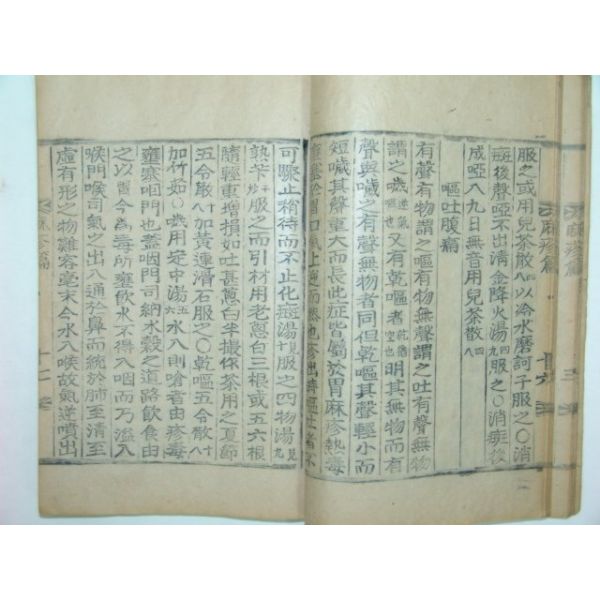 服之或用兒茶散八四以冷水磨訶子服之〇消
斑後聲啞不出清金降火湯九四服之〇消斑後
成啞八九日無音用兒茶散八四
嘔吐腹痛
有聲有物謂之嘔有物無聲謂之吐有聲無物
謂之噦逆氣也又有乾嘔者乾猶空也明其無物而有
聲與噦之有聲無物者同但乾嘔其聲輕小而
短噦其聲重大而長此症皆屬於胃麻疹熱毒
壅塞於胃口氣上逆而然也疹出時嘔吐者不
可驟止稍待而不止化斑湯服之四物湯見九
熟芐炒服之而引材用老蔥白三根或五六根
隨輕重增損如吐甚蔥白半撮作茶用之夏節
五令散十八加黃連滑石服之〇乾嘔五令散十八
加竹茹〇噦用定中湯五十水入則嗆者由疹毒
壅塞咽門也蓋咽門司納水穀之道路飲食由
之以胃今為毒所壅飲水不得入咽而乃溢入
喉門喉司氣之出入通於鼻而統於肺至清至
虛有形之物難容毫末今水入喉故氣逆噴出
麻疹篇